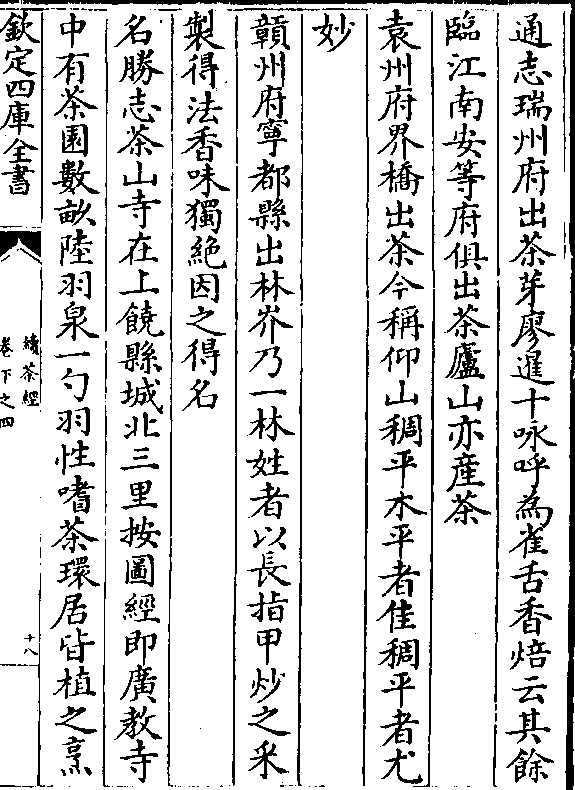 通志瑞州府出茶芽廖暹十咏呼為雀舌香焙云其餘
臨江南安等府俱出茶廬山亦產茶
袁州府界橋出茶今稱仰山稠平木平者佳稠平者尤
妙
贛州府寧都縣出林岕乃一林姓者以長指甲炒之采
製得法香味獨絕因之得名
名勝志茶山寺在上饒縣城北三里按圖經即廣教寺
中有茶園數畝陸羽泉一勺羽性嗜茶環居皆植之烹
欽定四庫全書
續茶經
卷下之四
十八